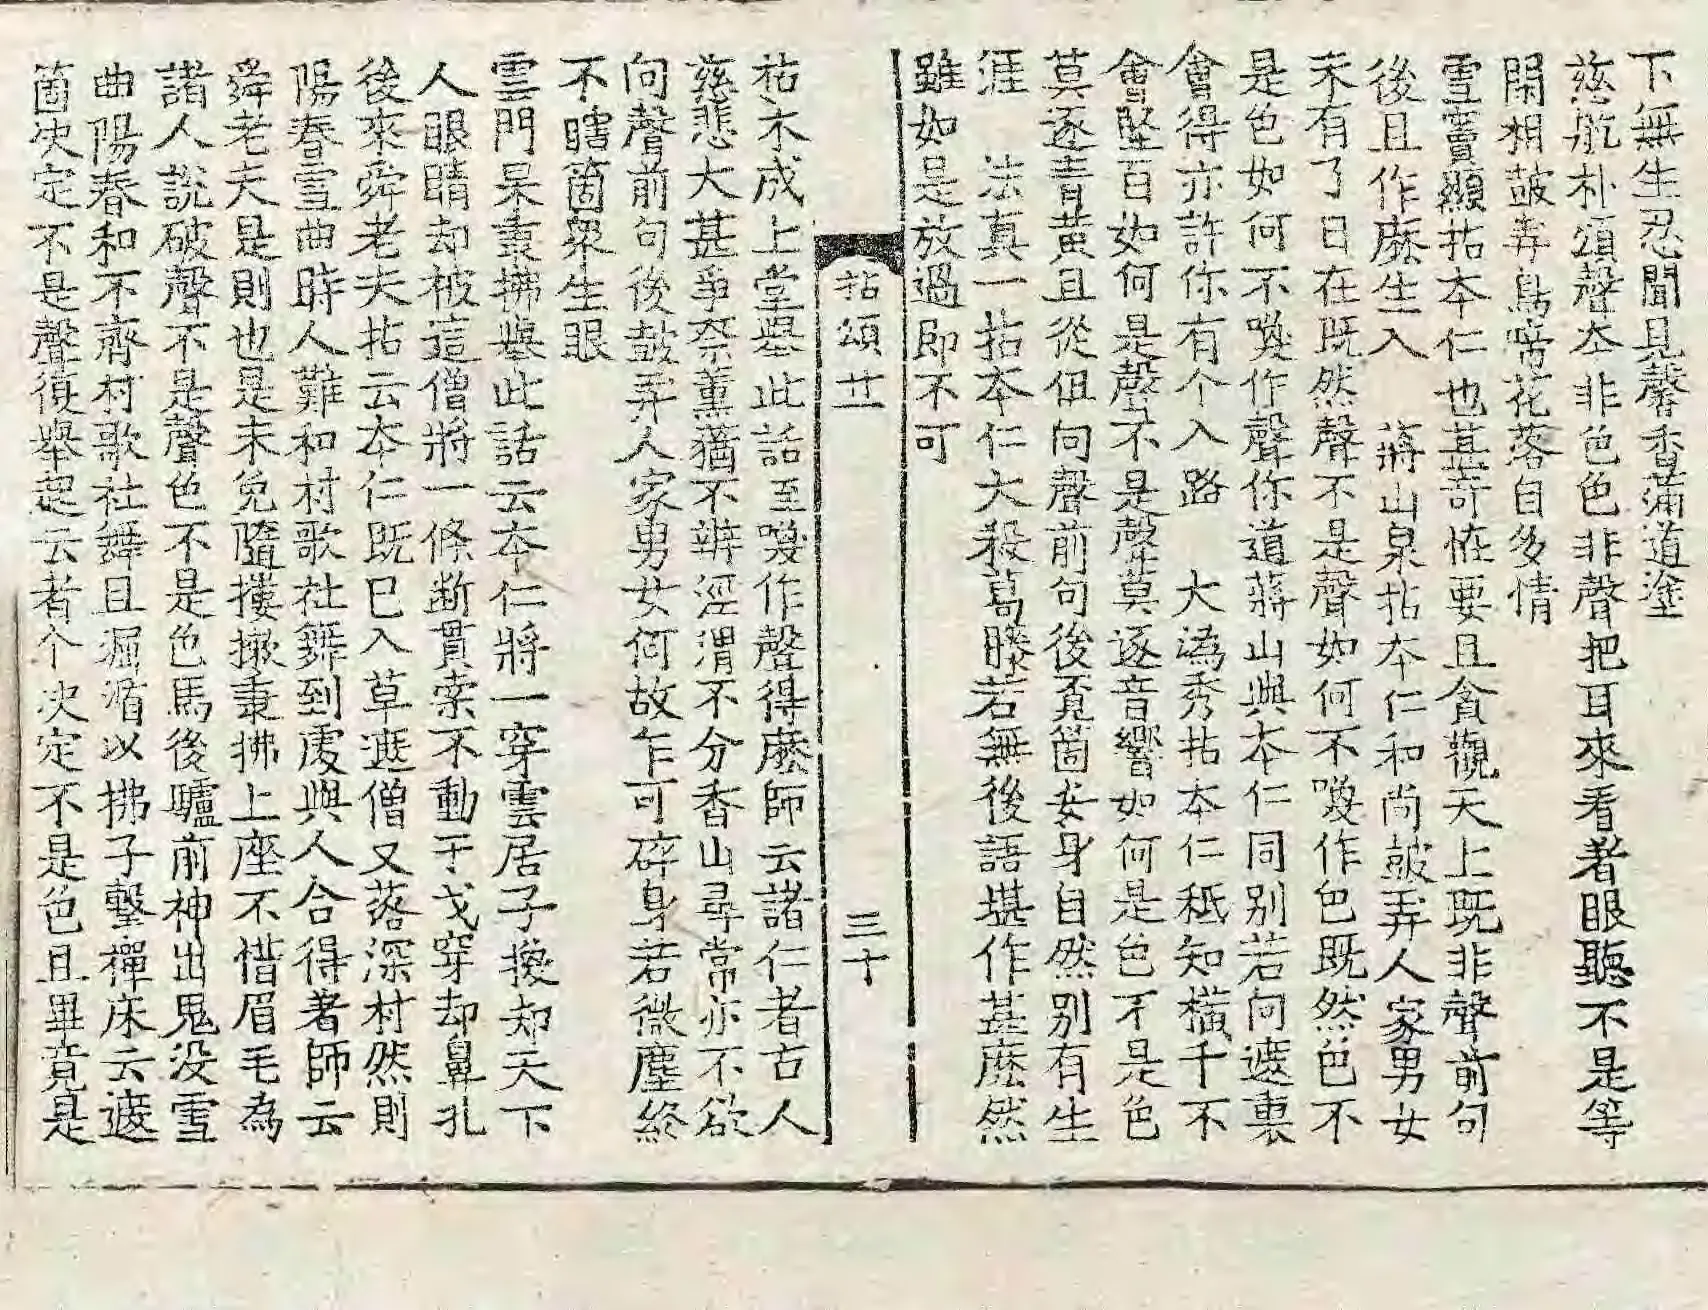 下無生忍聞見聲香蒲道塗
慈航朴頌聲本非色色非聲把耳來看着眼聽不是等
閑相皷弄鳥啼花落自多情
雪竇顯拈本仁也甚奇恠要且貪觀天上既非聲前句
後且作麽生入　蔣山泉拈本仁和尚皷弄人家男女
未有了日在既然聲不是聲如何不喚作色既然色不
是色如何不喚作聲你道蔣山與本仁同別若向遮裏
會得亦許你有个入路　大潙秀拈本仁秪知橫千不
會竪百如何是聲不是聲莫逐音響如何是色不是色
莫逐靑黃且從伹向聲前句後覓箇安身自然別有生
涯　法真一拈本仁大殺葛藤若無後語堪作甚麽然
雖如是放過即不可
拈頌廿一　三十
枯木成上堂舉此話至喚作聲得麽師云諸仁者古人
慈悲大甚爭奈薰蕕不辨涇渭不分香山尋常亦不欲
向聲前句後皷弄人家男女何故乍可碎身若微塵終
不瞎箇衆生眼
雲門杲秉拂舉此話云本仁將一穿雲居子換却天下
人眼睛却被這僧將一條断貫索不動干戈穿却鼻孔
後來舜老夫拈云本仁既已入草遮僧又落深村然則
陽春雪曲時人難和村歌社舞到處與人合得著師云
舜老夫是則也是未免隨摟㩻秉拂上座不惜眉毛為
諸人說破聲不是聲色不是色馬後驢前神出鬼没雪
曲陽春和不齊村歌社舞且𢰅㨩以拂子擊禪床云遮
箇决定不是聲復舉起云者个决定不是色且畢竟是